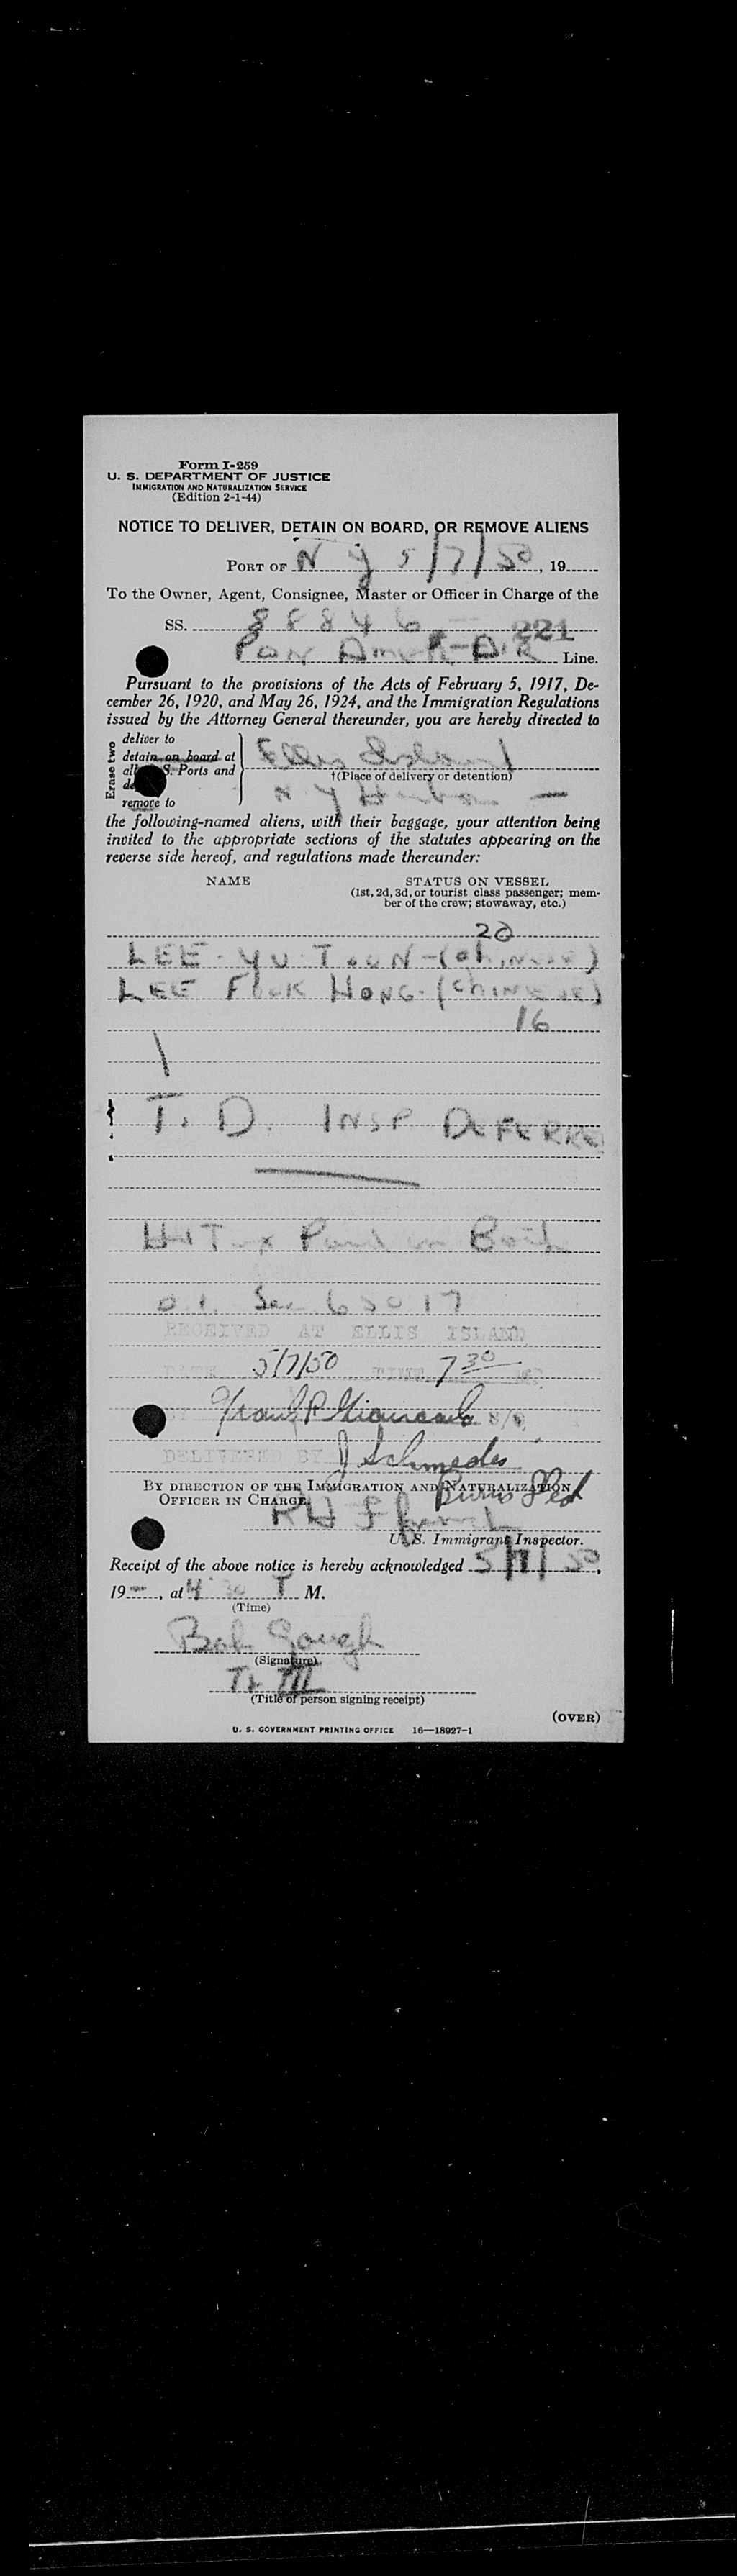 Form I-259
U. S. DEPARTMENT OF JUSTICE
IMMIGRATION AND NATURALIZATION SERVICE
(Edition 2-1-44)
NOTICE TO DELIVER, DETAIN ON BOARD, OR REMOVE ALIENS
PORT OF N Y 5/7/50, 19
To the Owner, Agent, Consignee, Master or Officer in Charge of the
SS. 88846 221
Pan Amer-Air Line.
Pursuant to the provisions of the Acts of February 5, 1917, De-
cember 26, 1920, and May 26, 1924, and the Immigration Regulations
issued by the Attorney General thereunder, you are hereby directed to
Erase two
deliver to
detain on board at
S. Ports and
remove to
Ellis Island
†(Place of delivery or detention)
N Y Harbor
the following-named aliens, with their baggage, your attention being
invited to the appropriate sections of the statutes appearing on the
reverse side hereof, and regulations made thereunder:
NAME STATUS ON VESSEL
(1st, 2d, 3d, or tourist class passenger; mem-
ber of the crew; stowaway, etc.)
20
LEE YU TOON-(Chinese)
LEE FOOK HONG-(Chinese)
16
T. D. INSP DEFERRE
Hd Tax Paid on Both
Sec 6 30 17
RECEIVED AT ELLIS ISLAND
DATE 5/7/50 TIME 7 30
DELIVERED BY J Schmedes
BY DIRECTION OF THE IMMIGRATION AND NATURALIZATION
OFFICER IN CHARGE
U. S. Immigrant Inspector.
Receipt of the above notice is hereby acknowledged 5/7/50,
19 , at 4 30 M.
(Time)
Bob Gough
(Signature)
(Title of person signing receipt)
(OVER)
U. S. GOVERNMENT PRINTING OFFICE 16—18927-1